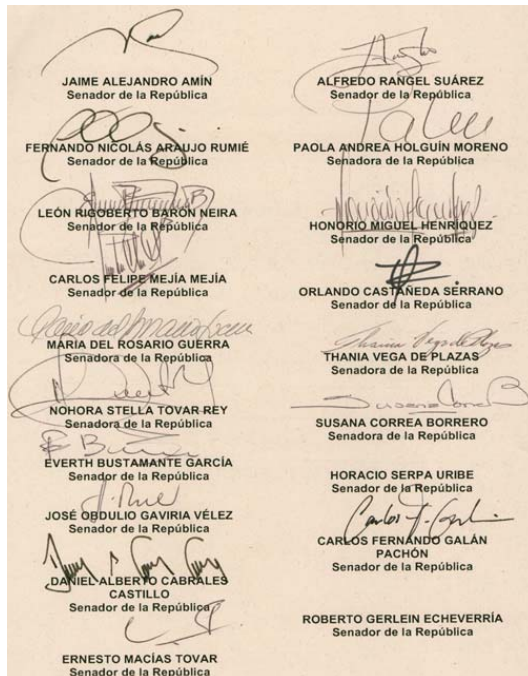 JAIME ALEJANDRO AMÍN
Senador de la República
FERNANDO NICOLÁS ARAUJO RUMIÉ
Senador de la República
LEÓN RIGOBERTO BARÓN NEIRA
Senador de la República
CARLOS FELIPE MEJÍA MEJÍA
Senador de la República
MARÍA DEL ROSARIO GUERRA
Senadora de la República
NOHORA STELLA TOVAR REY
Senadora de la República
EVERTH BUSTAMANTE GARCÍA
Senador de la República
JOSÉ OBDULIO GAVIRIA VÉLEZ
Senador de la República
DANIEL ALBERTO CABRALES
CASTILLO
Senador de la República
ERNESTO MACÍAS TOVAR
Senador de la República
ALFREDO RANGEL SUÁREZ
Senador de la República
PAOLA ANDREA HOLGUÍN MORENO
Senadora de la República
HONORIO MIGUEL HENRÍQUEZ
Senador de la República
ORLANDO CASTAÑEDA SERRANO
Senador de la República
THANIA VEGA DE PLAZAS
Senadora de la República
SUSANA CORREA BORRERO
Senadora de la República
HORACIO SERPA URIBE
Senador de la República
CARLOS FERNANDO GALÁN
PACHÓN
Senador de la República
ROBERTO GERLEIN ECHEVERRÍA
Senador de la República